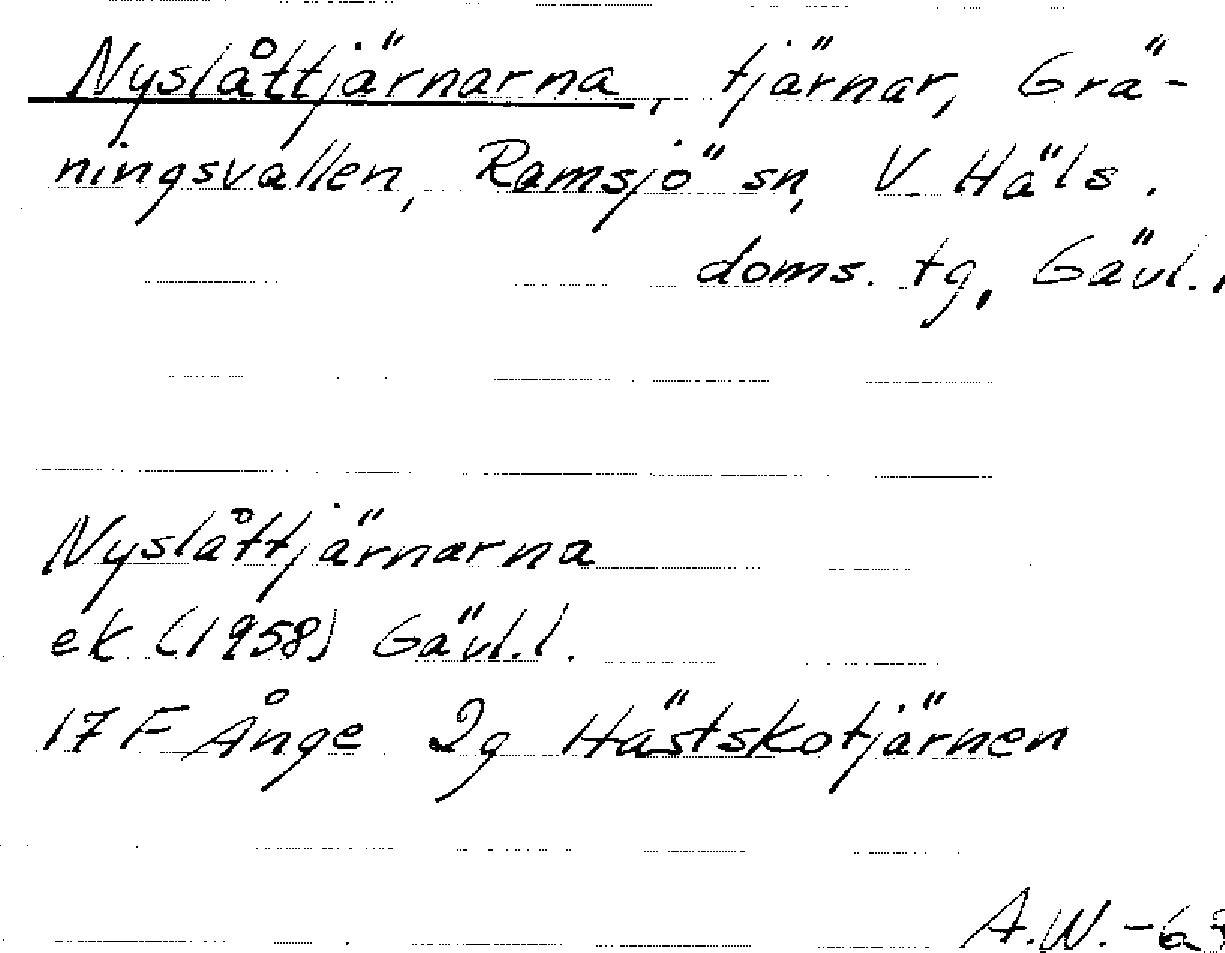 Nyslåttjärnarna, tjärnar, Grä-
ningsvallen, Ramsjö sn, V Häls.
doms. tg, Gävl.
Nyslåttjärnarna
ek (1958) Gävl.l.
17 F Ånge 2g Hästskotjärnen
A.W.